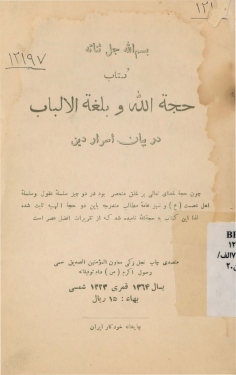 ۱۲۱
۱۲۱۹۷
بسم الله جل ثنائه
کتاب
حجة الله و بلغة الالباب
در بیان اسرار دین
چون حجة خدای تعالی بر خلق منحصر بود در دو چیز سلسلهٔ عقول وسلسلهٔ
اهل عصمت (ع) و نیز عامهٔ مطالب مندرجه باین دو حجة الهیه ثابت شده
لذا این کتاب به حجةالله نامیده شد که از تقریرات افضل عصر است
متصدی چاپ نجل زکی معاون المؤمنین الصدیق سمی
رسول اکرم (ص) دام توفیقاته
بسال ۱۳۶۴ قمری ۱۳۲۳ شمسی
بهاء : ۱۵ ریال
چاپخانه خودکار ایران